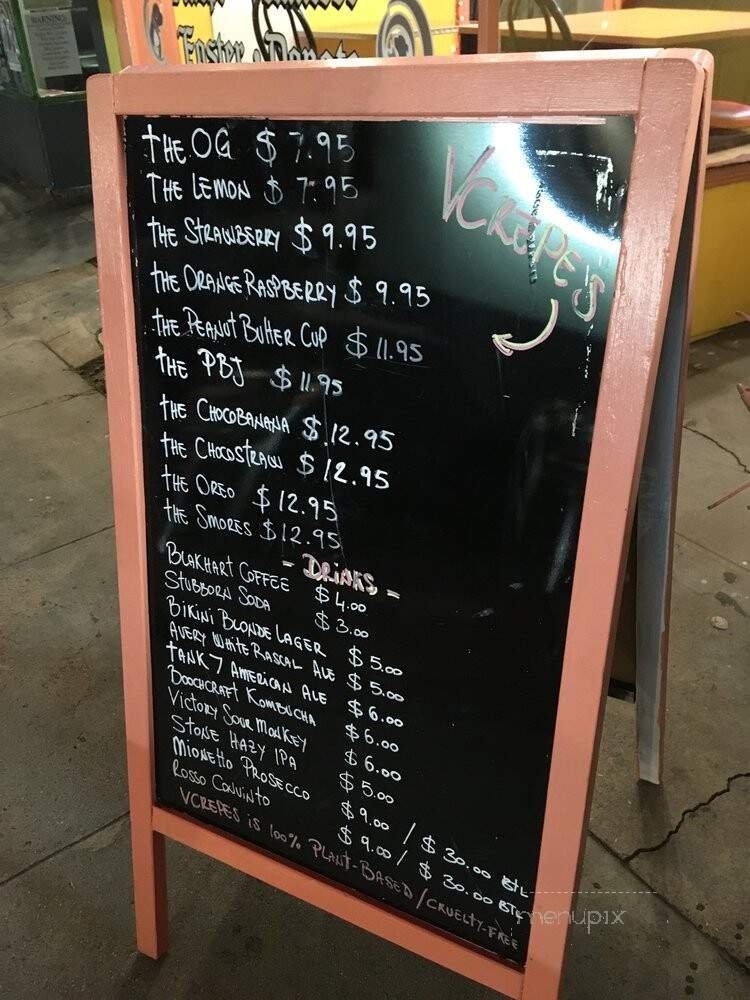 WARNING:
Foster Donate
VCREPES
THE OG $7.95
THE LEMON $7.95
THE STRAWBERRY $9.95
THE ORANGE RASPBERRY $9.95
THE PEANUT BUTTER CUP $11.95
THE PBJ $11.95
THE CHOCOBANANA $12.95
THE CHOCOSTRAW $12.95
THE OREO $12.95
THE SMORES $12.95
- DRINKS -
BLAKHART COFFEE $4.00
STUBBORN SODA $3.00
BIKINI BLONDE LAGER $5.00
AVERY WHITE RASCAL ALE $5.00
TANK 7 AMERICAN ALE $6.00
BOOCHCRAFT KOMBUCHA $6.00
VICTORY SOUR MONKEY $6.00
STONE HAZY IPA $5.00
MIONETTO PROSECCO $9.00 / $30.00 BTL
ROSSO CONVINTO $9.00 / $30.00 BTL
VCREPES is 100% PLANT-BASED / CRUELTY-FREE
menupix